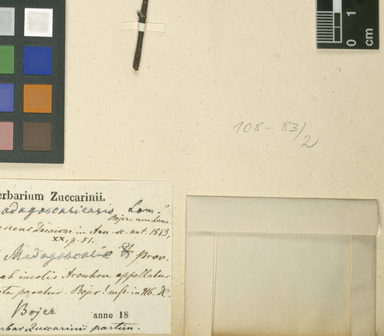 0 1
cm
108-83/2
erbarium Zuccarinii.
adagascariensis Lam."
Bojer. non Lam.
Decaisne in Ann. sc. nat. 1843,
XX, p. 51.
Madagascariæ prov.
ab incolis appellatur
paratur. Bojer!
Bojer anno 18
Zuccarinii partim.